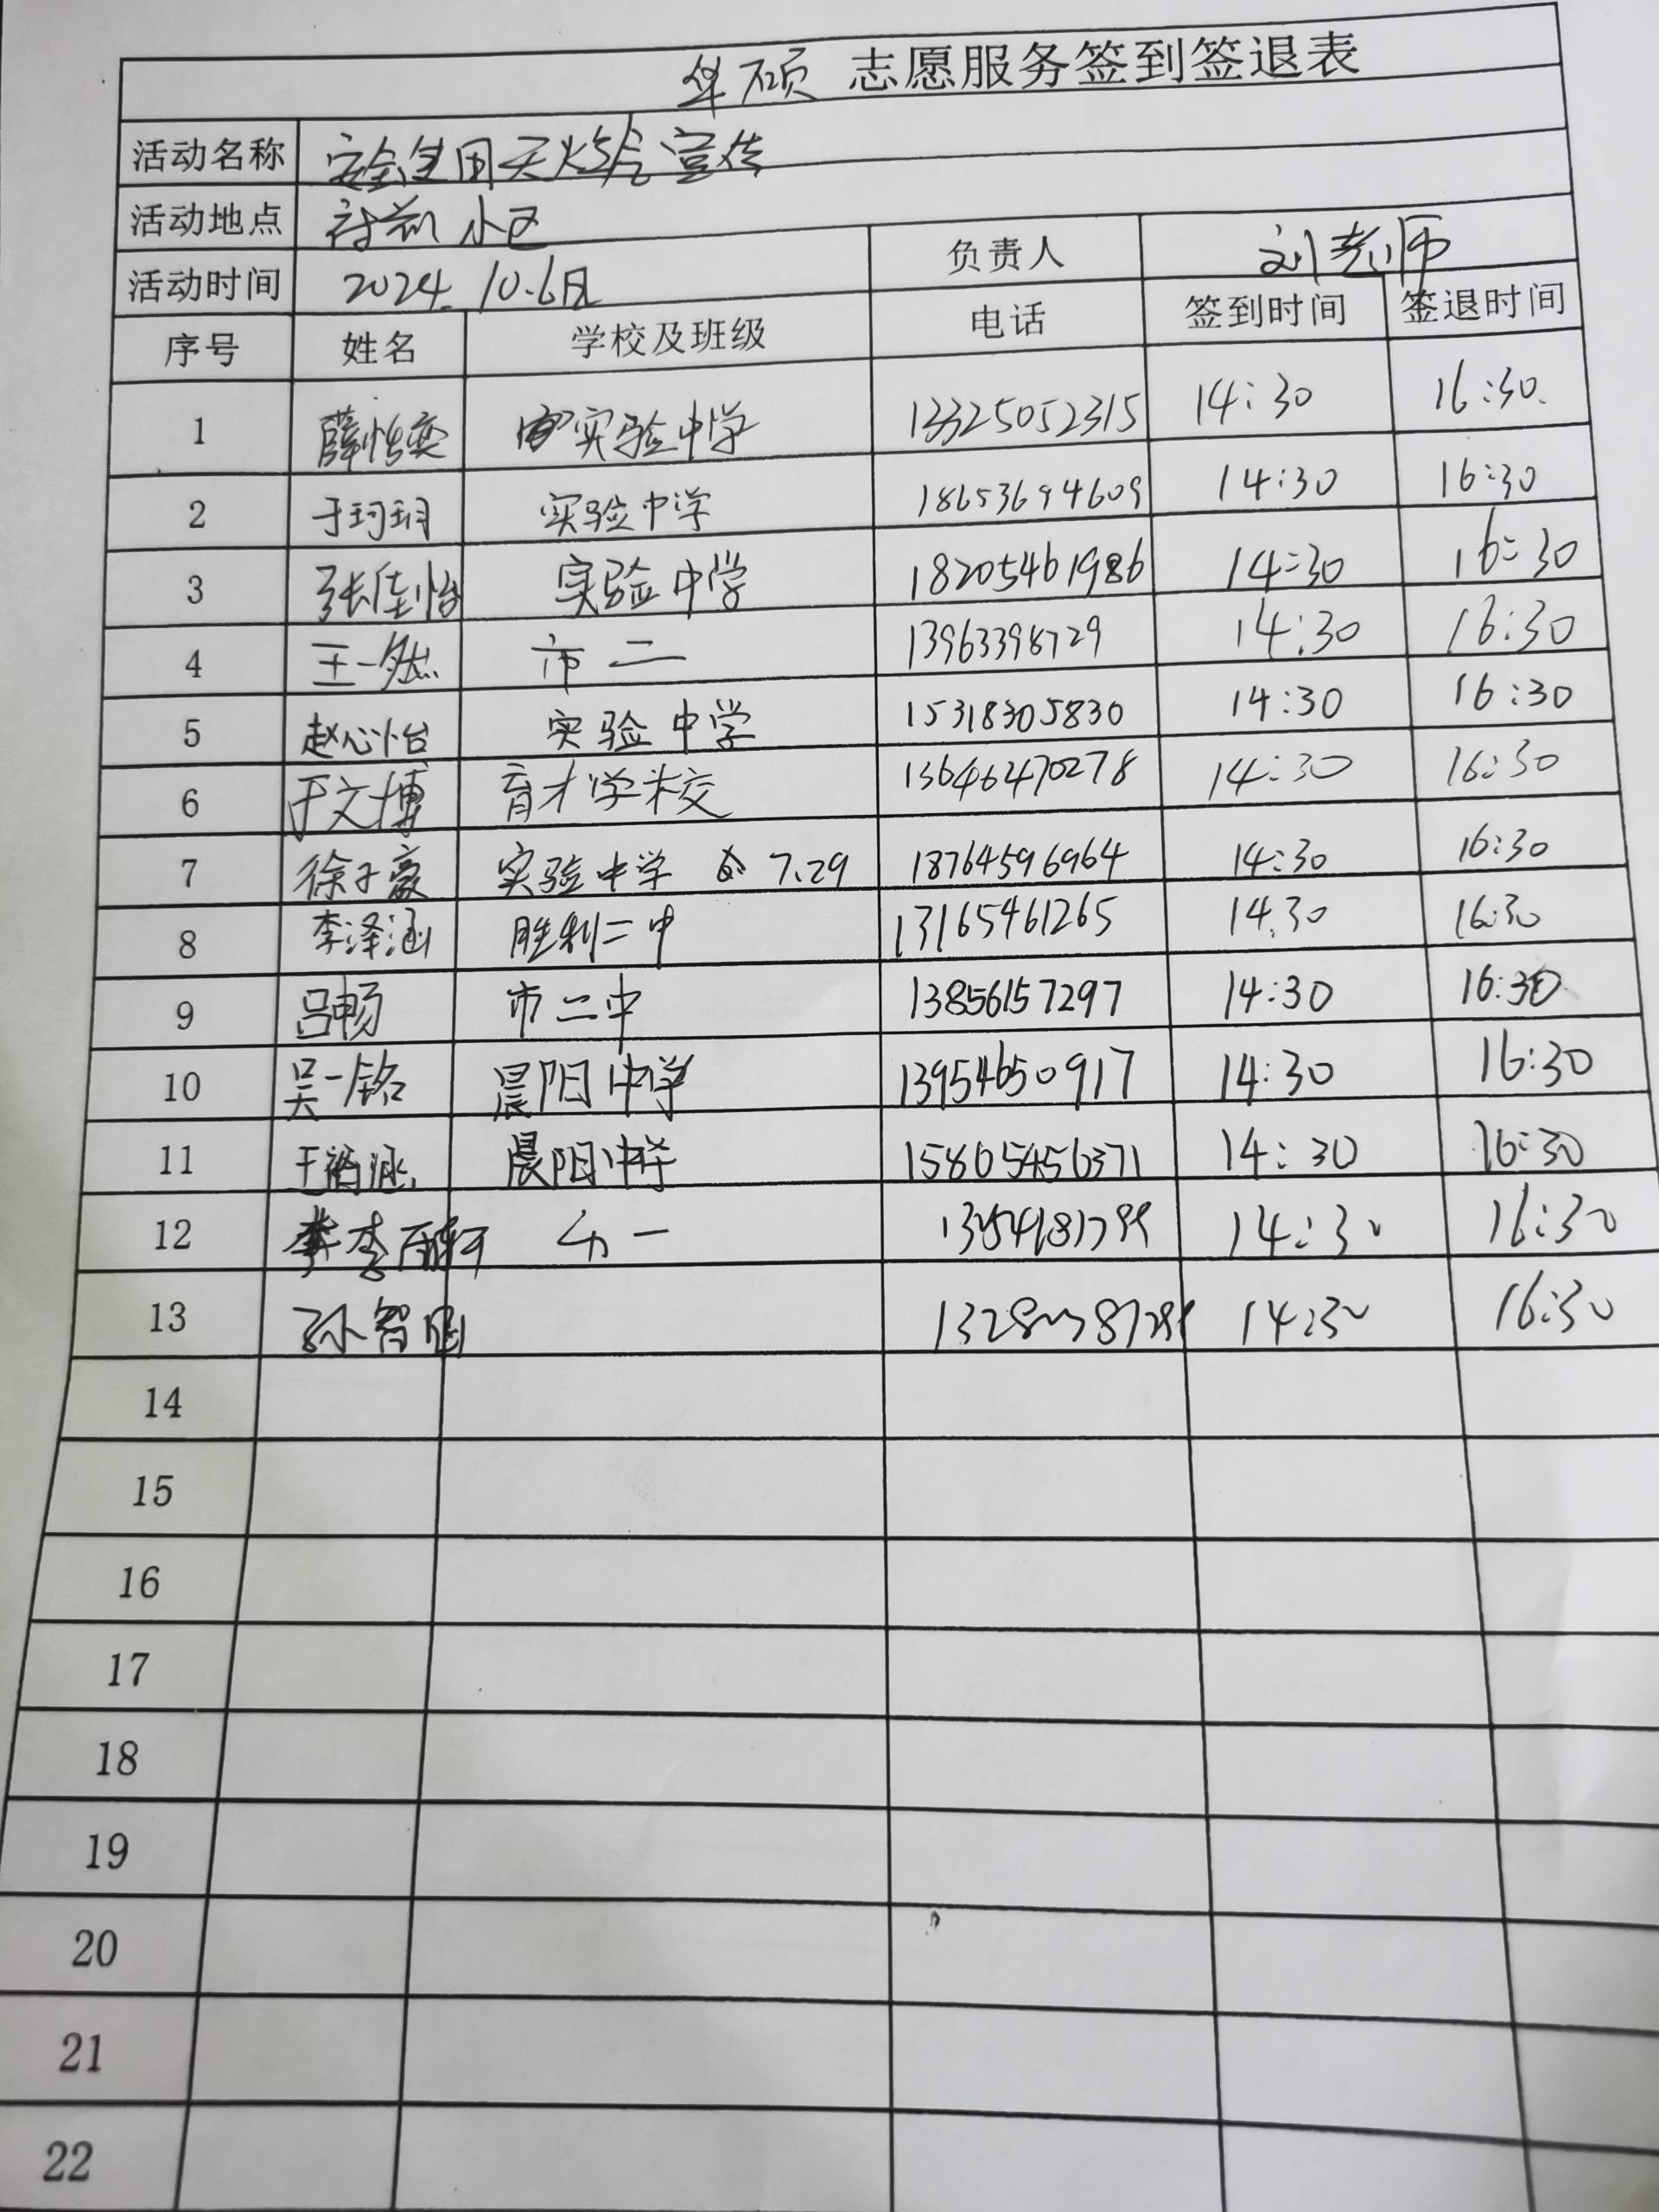 华硕 志愿服务签到签退表
活动名称 安全使用天燃气宣传
活动地点 小区
活动时间 2024.10.6日 负责人 刘老师
序号 姓名 学校及班级 电话 签到时间 签退时间
1 薛怡奕 实验中学 13325052315 14:30 16:30
2 于珂玥 实验中学 18653694609 14:30 16:30
3 张佳怡 实验中学 18205461986 14:30 16:30
4 王一然 市二 13963398729 14:30 16:30
5 赵心怡 实验中学 15318305830 14:30 16:30
6 于文博 育才学校 13646470278 14:30 16:30
7 徐子豪 实验中学 7.29 18764596964 14:30 16:30
8 李泽涵 胜利二中 13165461265 14:30 16:30
9 吕畅 市二中 13856157297 14:30 16:30
10 吴一铭 晨阳中学 13954650917 14:30 16:30
11 晨阳中学 14:30 16:30
12 李 一 14:30 16:30
13 孙智 14:30 16:30
14
15
16
17
18
19
20
21
22